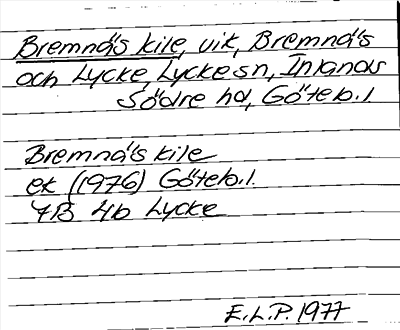 Bremnäs kile, vik, Bremnäs
och Lycke, Lycke sn, Inlands
Södre hd, Göteb.l.
Bremnäs kile
ek (1976) Göteb.l.
7B 4b Lycke
E.L.P. 1977